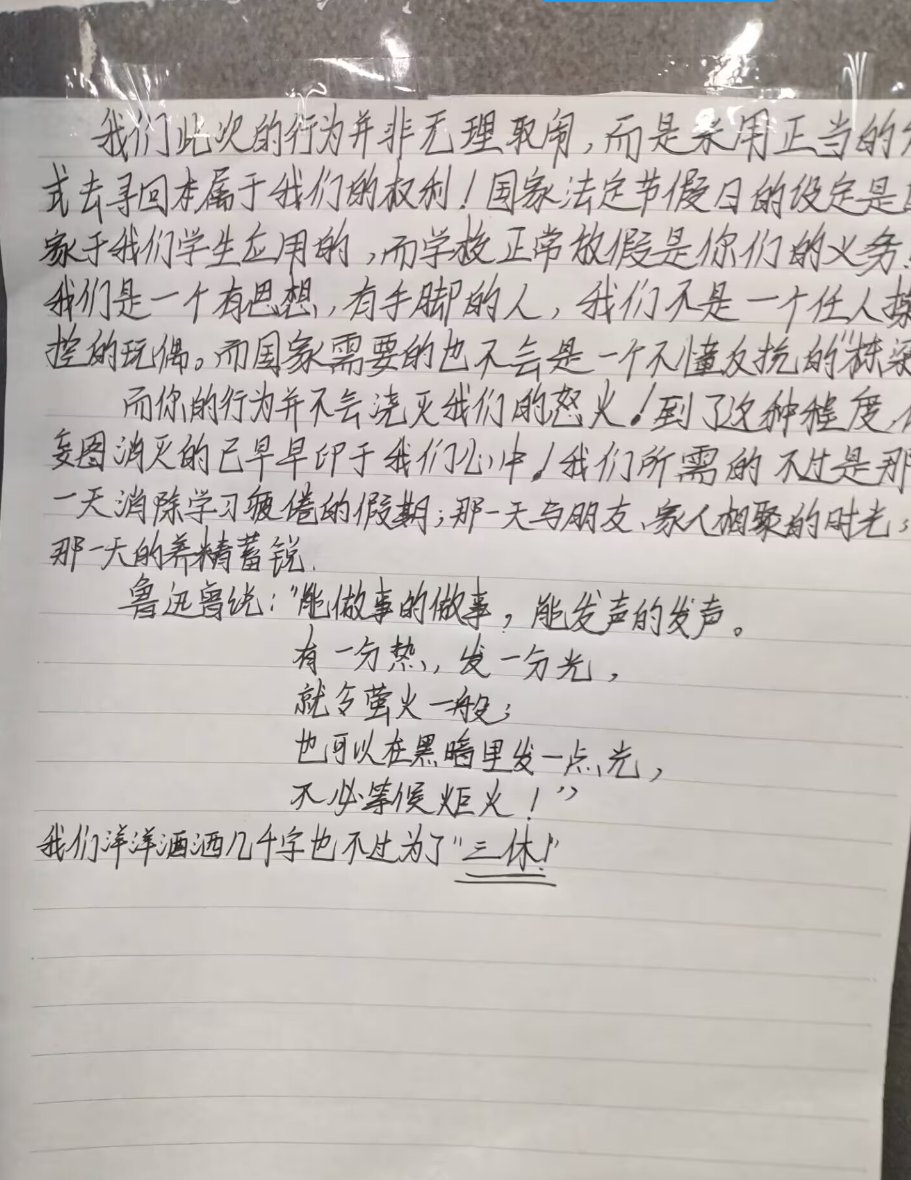 我们此次的行为并非无理取闹，而是采用正当的
式去寻回本属于我们的权利！国家法定节假日的设定是
家于我们学生应用的，而学校正常放假是你们的义务
我们是一个有思想，有手脚的人，我们不是一个任人操
控的玩偶。而国家需要的也不会是一个不懂反抗的"栋梁
而你的行为并不会浇灭我们的怒火！到了这种程度，
妄图消灭的已早早印于我们心中！我们所需的不过是那
一天消除学习疲倦的假期；那一天与朋友、家人相聚的时光；
那一天的养精蓄锐.
鲁迅曾说："能做事的做事，能发声的发声。
有一分热，发一分光，
就令萤火一般；
也可以在黑暗里发一点光，
不必等候炬火！"
我们洋洋洒洒几千字也不过为了"三休！"